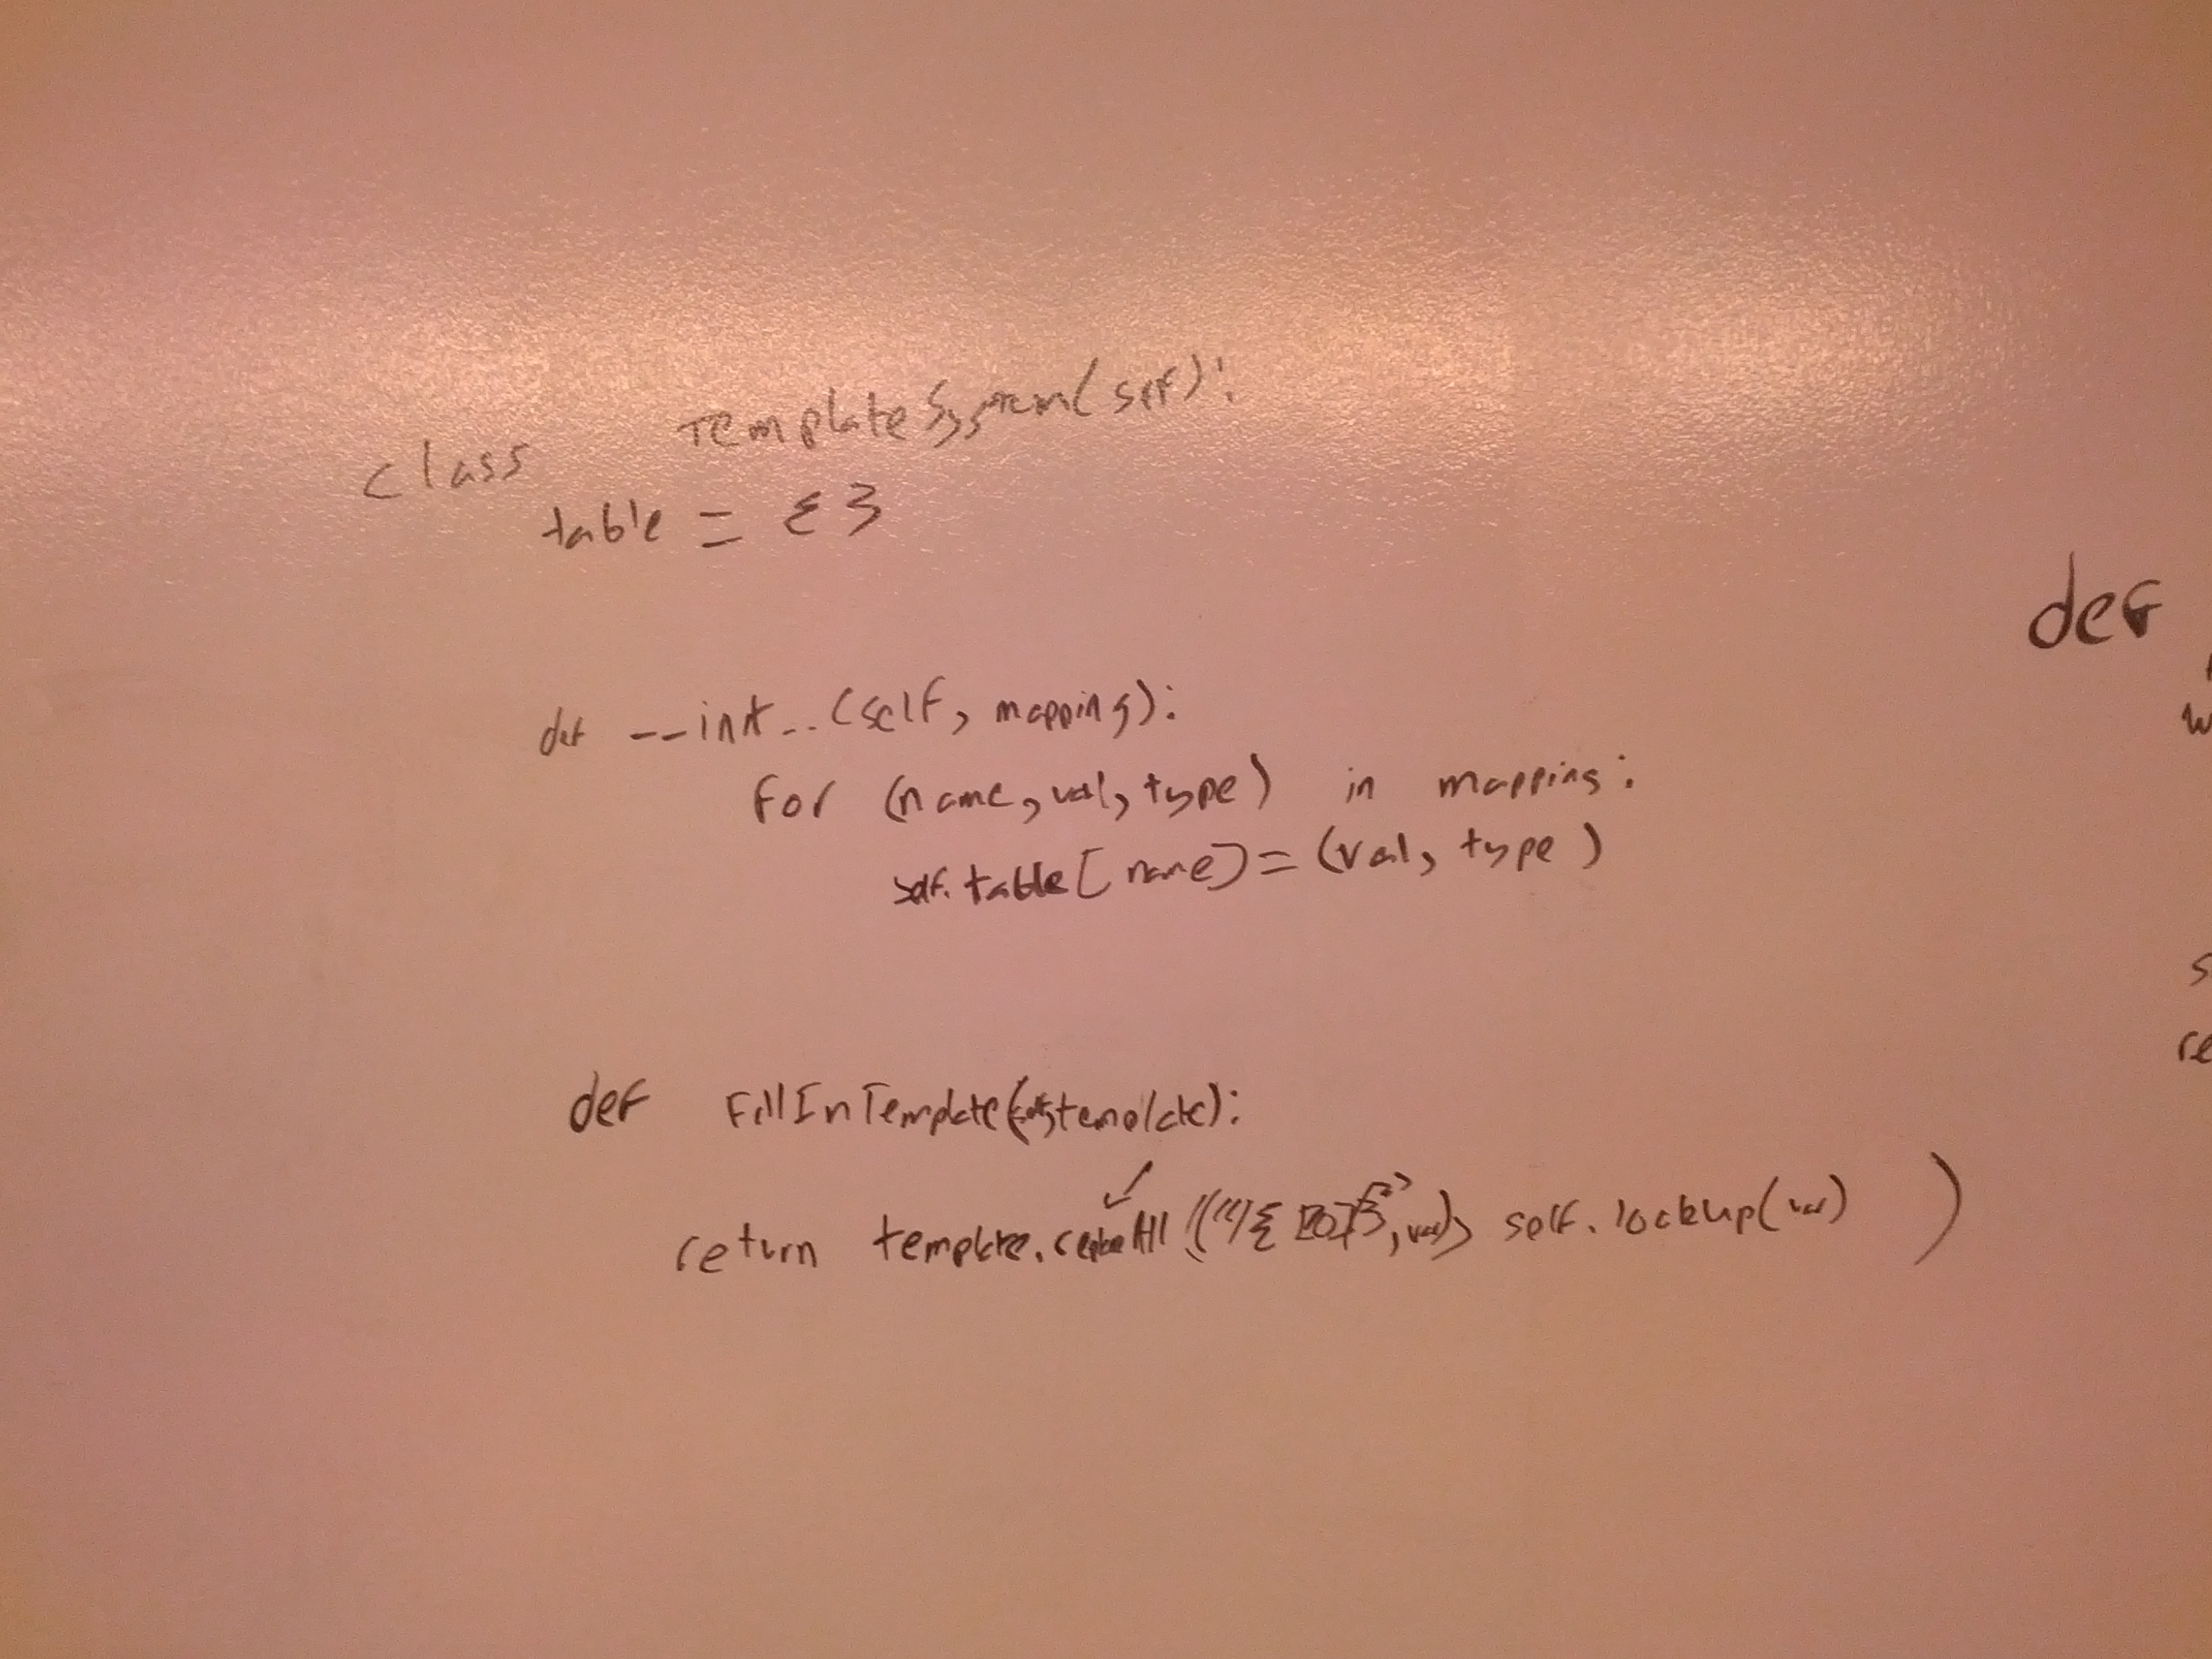 class TemplateSystem(self):
table = {}
def __init__(self, mapping):
for (name, val, type) in mapping:
self.table[name] = (val, type)
def FillInTemplate(self, template):
return template.replaceAll( self.lookup(var) )
def